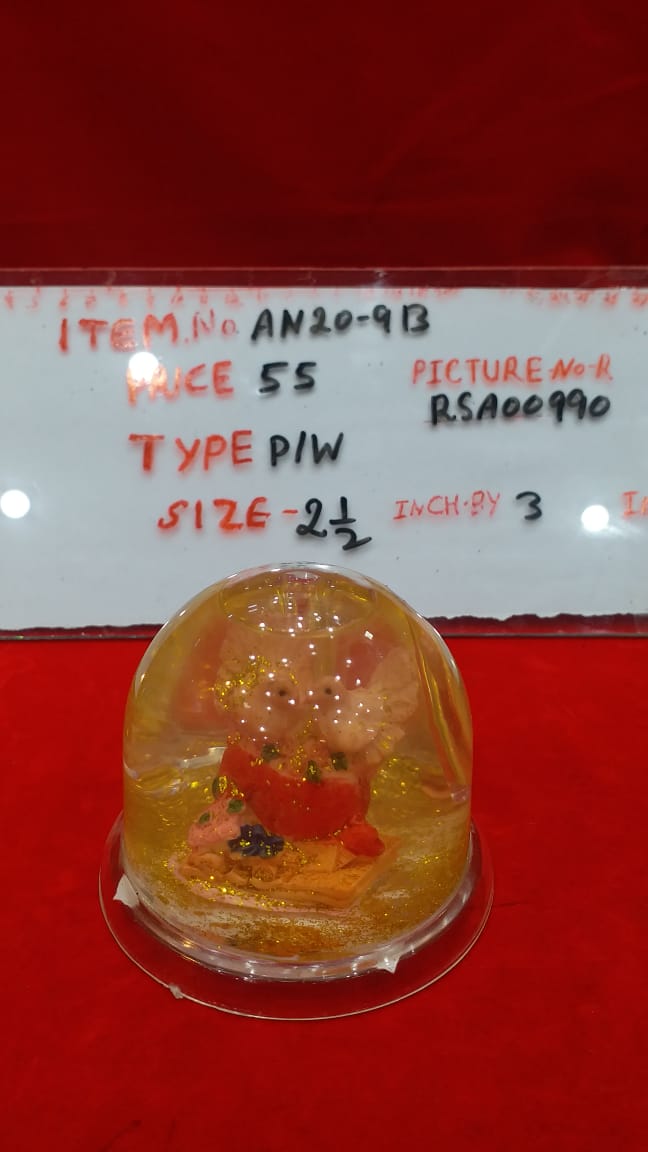 ITEM.No. AN20-9B
PRICE 55
PICTURE No-R
RSA00990
TYPE P/W
SIZE - 2 1/2 INCH-BY 3